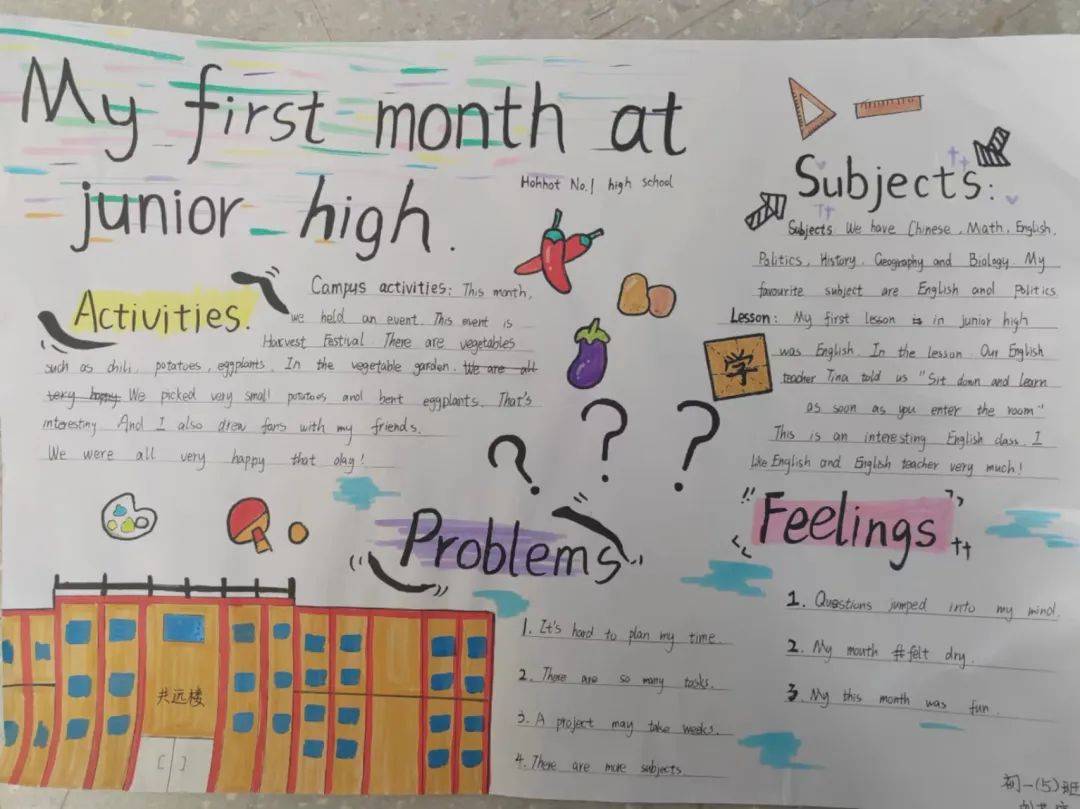 My first month at
junior high.
Hohhot No.1 high school
Activities.
Campus activities: This month,
we held an event. This event is
Harvest Festival. There are vegetables
such as chili, potatoes, eggplants. In the vegetable garden. We are all
very happy We picked very small potatoes and bent eggplants. That's
interesting And I also drew fans with my friends.
We were all very happy that day!
Subjects:
Subjects We have Chinese, Math, English,
Politics, History, Geography and Biology. My
favourite subject are English and Politics
Lesson: My first lesson is in junior high
was English. In the lesson. Our English
teacher Tina told us "Sit down and learn
as soon as you enter the room"
This is an interesting English class. I
like English and English teacher very much!
学
? ? ?
Problems
1. It's hard to plan my time.
2. There are so many tasks.
3. A project may take weeks.
4. There are more subjects
Feelings
1. Questions jumped into my mind.
2. My mouth felt dry.
3. My this month was fun.
共远楼
初一(5)班